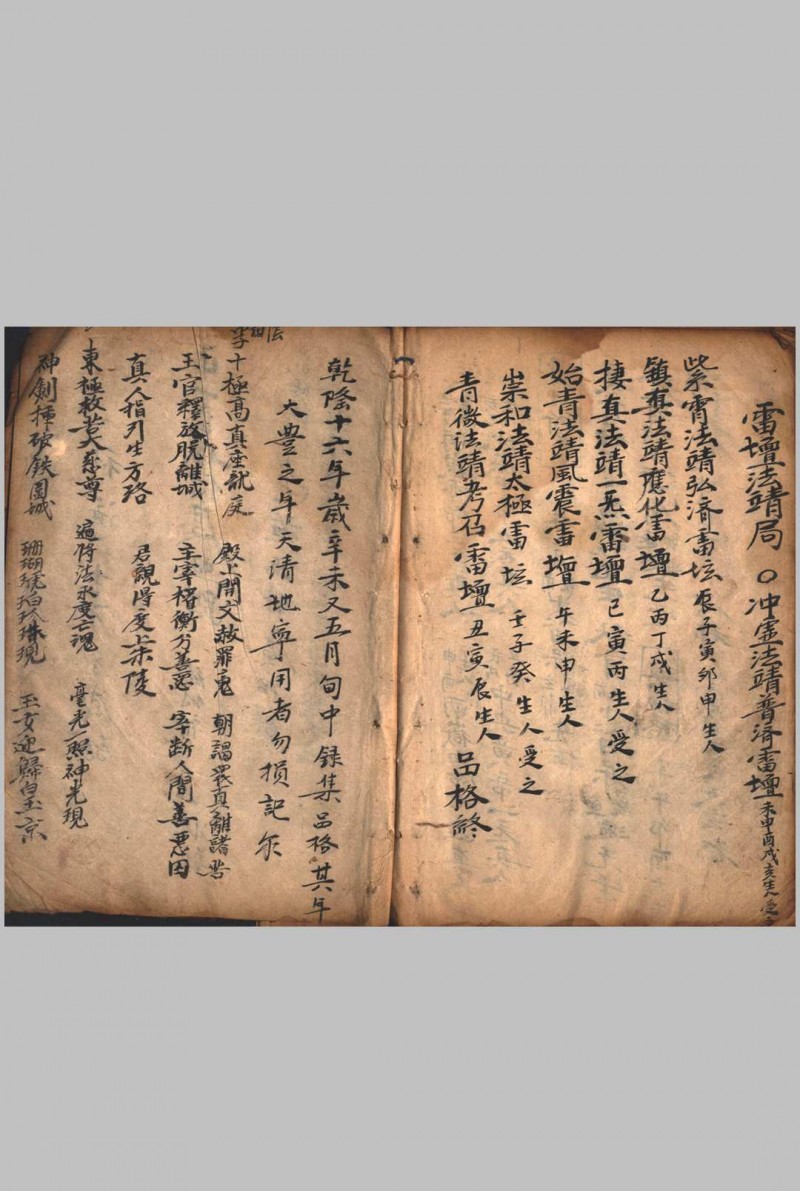 雷壇法靖局 〇冲虛法靖普济雷壇未申酉戌亥生人受之
紫霄法靖弘济雷坛辰子寅卯申生人
鎮真法靖應化雷壇乙丙丁戌生人
棲真法靖一炁雷壇巳寅丙生人受之
始青法靖風震雷壇午未申生人
崇和法靖太極雷坛壬子癸生人受之
青微法靖考召雷壇丑寅辰生人 品格終
乾隆十六年歲辛未又五月旬中録集品格其年
大豊之年天清地寧用者勿損記尔
十極高真座龍庭 殿上開文赦罪鬼 朝謁眾真離諸苦
王官釋放脫離城 主宰權衡分善惡 宰断人間善惡因
真人指引生方路 君親得度上朱陵
東極救苦大慈尊 遍符法永度亡魂 毫光一照神光現
神劍掃破鉄圍城 珊瑚琥珀珍珠現 玉女迎歸白玉京